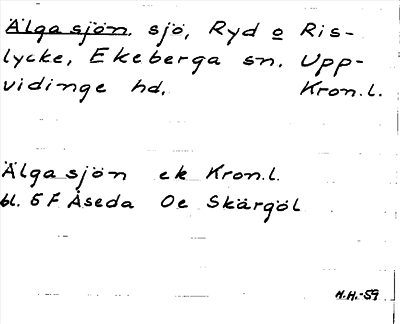 Älgasjön. sjö, Ryd o Ris-
lycke, Ekeberga sn. Upp-
vidinge hd. Kron.l.
Älgasjön ek Kron.l.
bl. 5 F Åseda Oe Skärgöl
H.H.-59